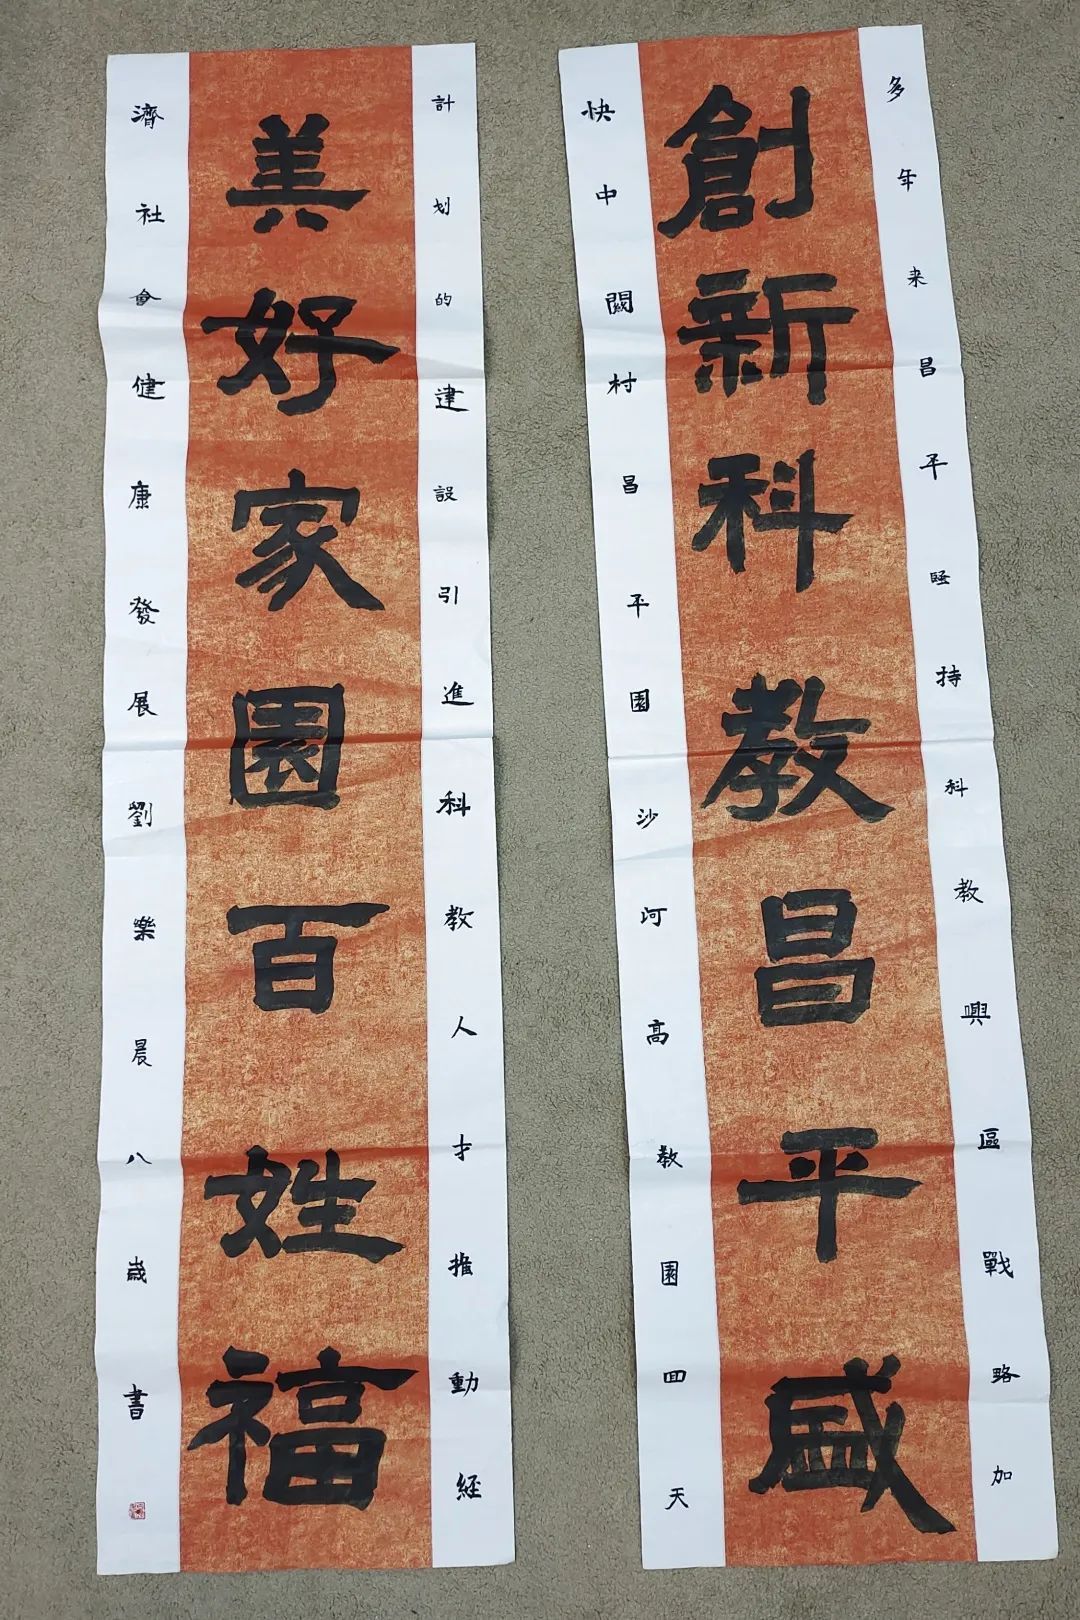 多年来昌平持科教興區戰略加
創新科教昌平盛
快中關村昌平園沙河高教園回天
計划的建設引進科教人才推動經
美好家園百姓福
濟社會健康發展劉樂晨八歲書